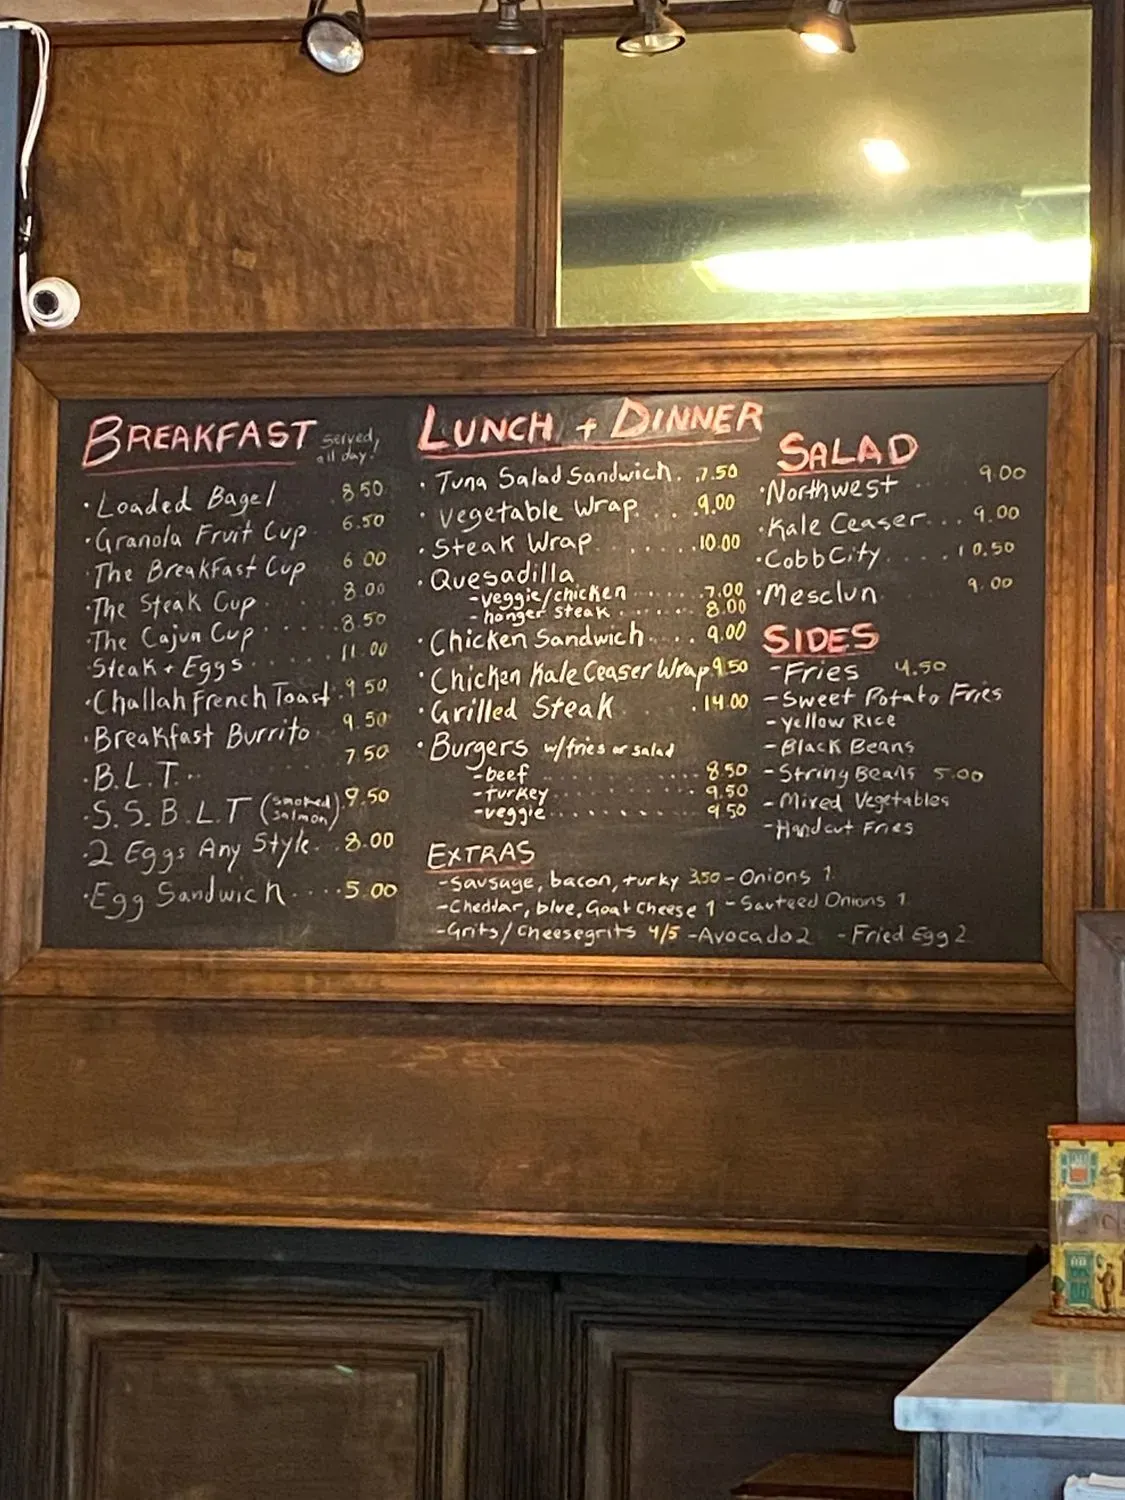 BREAKFAST served, all day!
· Loaded Bagel 8.50
· Granola Fruit Cup 6.50
· The Breakfast Cup 6.00
· The Steak Cup 8.00
· The Cajun Cup 8.50
· Steak + Eggs 11.00
· Challah French Toast 9.50
· Breakfast Burrito 9.50
· B.L.T. 7.50
· S.S.B.L.T (smoked salmon) 9.50
· 2 Eggs Any Style 8.00
· Egg Sandwich 5.00
LUNCH + DINNER
· Tuna Salad Sandwich 7.50
· Vegetable Wrap 9.00
· Steak Wrap 10.00
· Quesadilla
- veggie/chicken 7.00
- hanger steak 8.00
· Chicken Sandwich 9.00
· Chicken Kale Ceaser Wrap 9.50
· Grilled Steak 14.00
· Burgers w/fries or salad
- beef 8.50
- turkey 9.50
- veggie 9.50
EXTRAS
- Sausage, bacon, turky 3.50 - Onions 1
- Cheddar, blue, Goat Cheese 1 - Sauteed Onions 1
- Grits/cheesegrits 4/5 - Avocado 2 - Fried Egg 2
SALAD
· Northwest 9.00
· Kale Ceaser 9.00
· Cobb City 10.50
· Mesclun 9.00
SIDES
- Fries 4.50
- Sweet Potato Fries
- Yellow Rice
- Black Beans
- String Beans 5.00
- Mixed Vegetables
- Handcut Fries